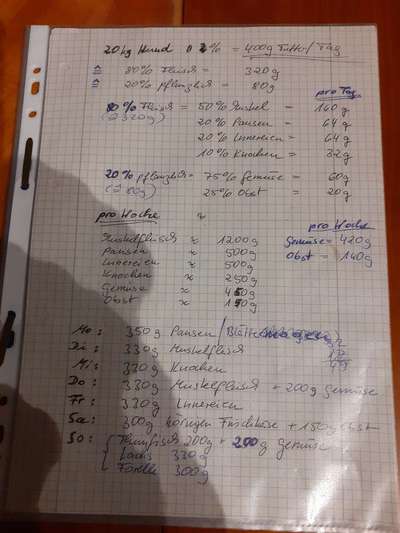 20kg Hund à 2% = 400g Futter/Tag
≙ 80% Fleisch = 320g
≙ 20% pflanzlich = 80g
pro Tag
80% Fleisch = 50% Muskel = 160g
(≙ 320g) 20% Pansen = 64g
20% Innereien = 64g
10% Knochen = 32g
20% pflanzlich = 75% Gemüse = 60g
(≙ 80g) 25% Obst = 20g
pro Woche
Muskelfleisch 1200g
Pansen 500g
Innereien 500g
Knochen 250g
Gemüse 450g
Obst 150g
pro Woche
Gemüse = 420g
Obst = 140g
Mo: 350g Pansen /
Di: 330g Muskelfleisch
Mi: 330g Knochen
Do: 330g Muskelfleisch + 200g Gemüse
Fr: 330g Innereien
Sa: 300g körnigen Frischkäse + 150g Obst
So: Thunfisch 200g + 200g Gemüse
Lachs 330g
Forelle 300g